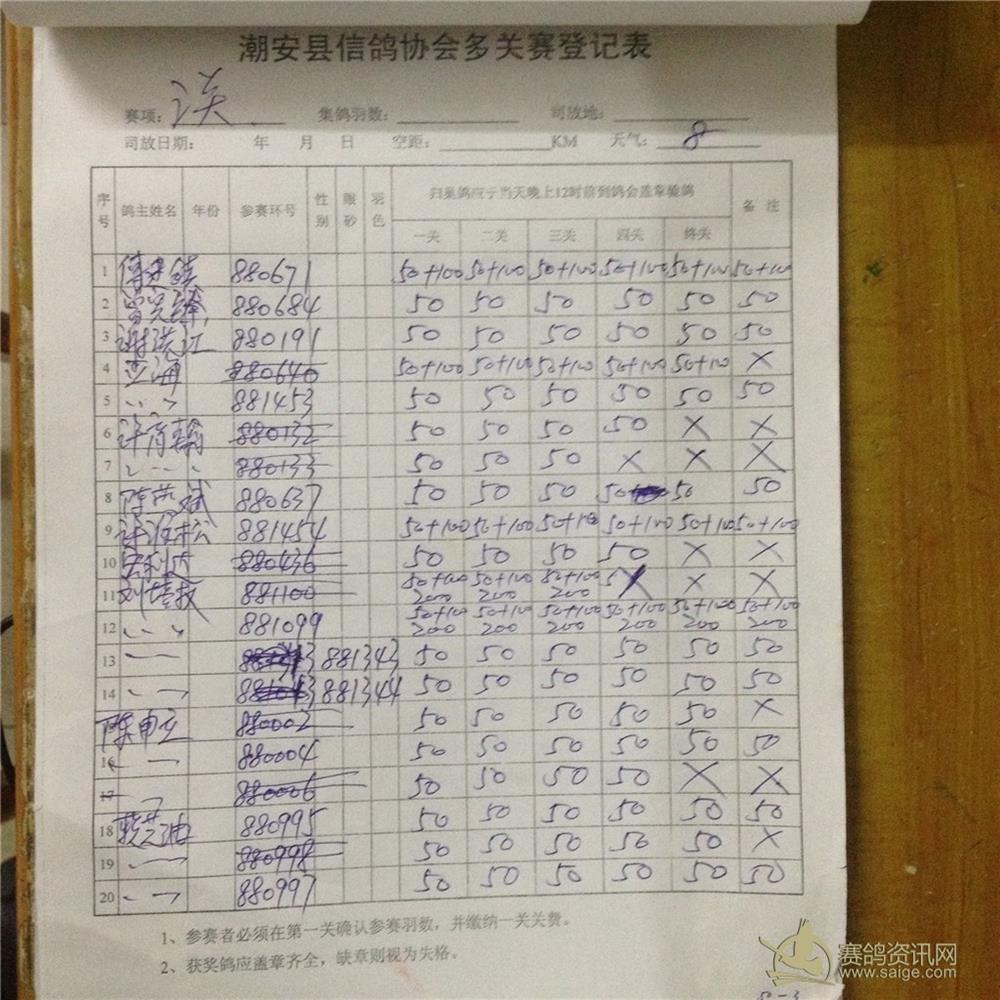 潮安县信鸽协会多关赛登记表
赛项: 集鸽羽数: 司放地:
司放日期: 年 月 日 空距: KM 天气: 8
序号 鸽主姓名 年份 参赛环号 性别 眼砂 羽色 归巢鸽应于当天晚上12时前到鸽会盖章验鸽 备注
一关 二关 三关 四关 终关
1 880671 50+100 50+100 50+100 50+100 50+100 50+100
2 880684 50 50 50 50 50 50
3 谢洪江 880191 50 50 50 50 50 50
4 亚海 880640 50+100 50+100 50+100 50+100 50+100 X
5 881453 50 50 50 50 50 50
6 880132 50 50 50 50 X X
7 880133 50 50 50 X X X
8 880637 50 50 50 50 50 50
9 881454 50+100 50+100 50+100 50+100 50+100 50+100
10 880436 50 50 50 50 X X
11 881100 50+100 200 50+100 200 50+100 200 X X X
12 881099 50+100 200 50+100 200 50+100 200 50+100 200 50+100 200 50+100 200
13 881343 50 50 50 50 50 50
14 881344 50 50 50 50 50 50
陈申立 880002 50 50 50 50 50 X
16 880004 50 50 50 50 50 50
17 880006 50 50 50 50 X X
18 880995 50 50 50 50 50 50
19 880998 50 50 50 50 50 X
20 880997 50 50 50 50 50 50
1、参赛者必须在第一关确认参赛羽数，并缴纳一关关费。
2、获奖鸽应盖章齐全，缺章则视为失格。
赛鸽资讯网
www.saige.com